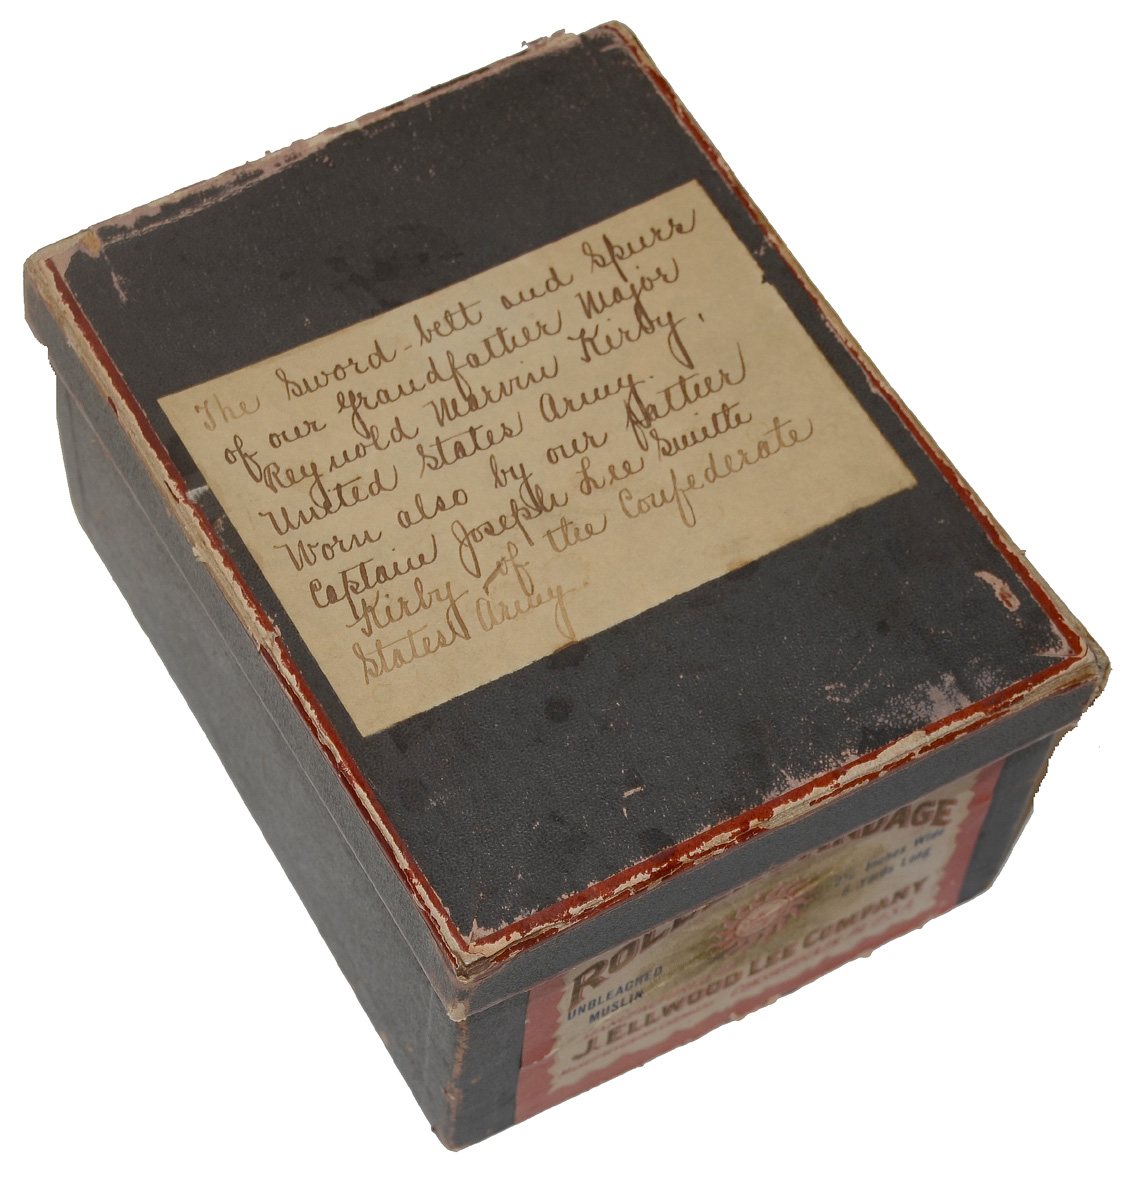 The Sword-belt and Spurs
of our Grandfather Major
Reynold Marvin Kirby,
United States Army.
Worn also by our father
Captain Joseph Lee Smith
Kirby of the Confederate
States Army.
ROLL BANDAGE
UNBLEACHED
MUSLIN
2½ Inches Wide
6 Yards Long
J. ELLWOOD LEE COMPANY